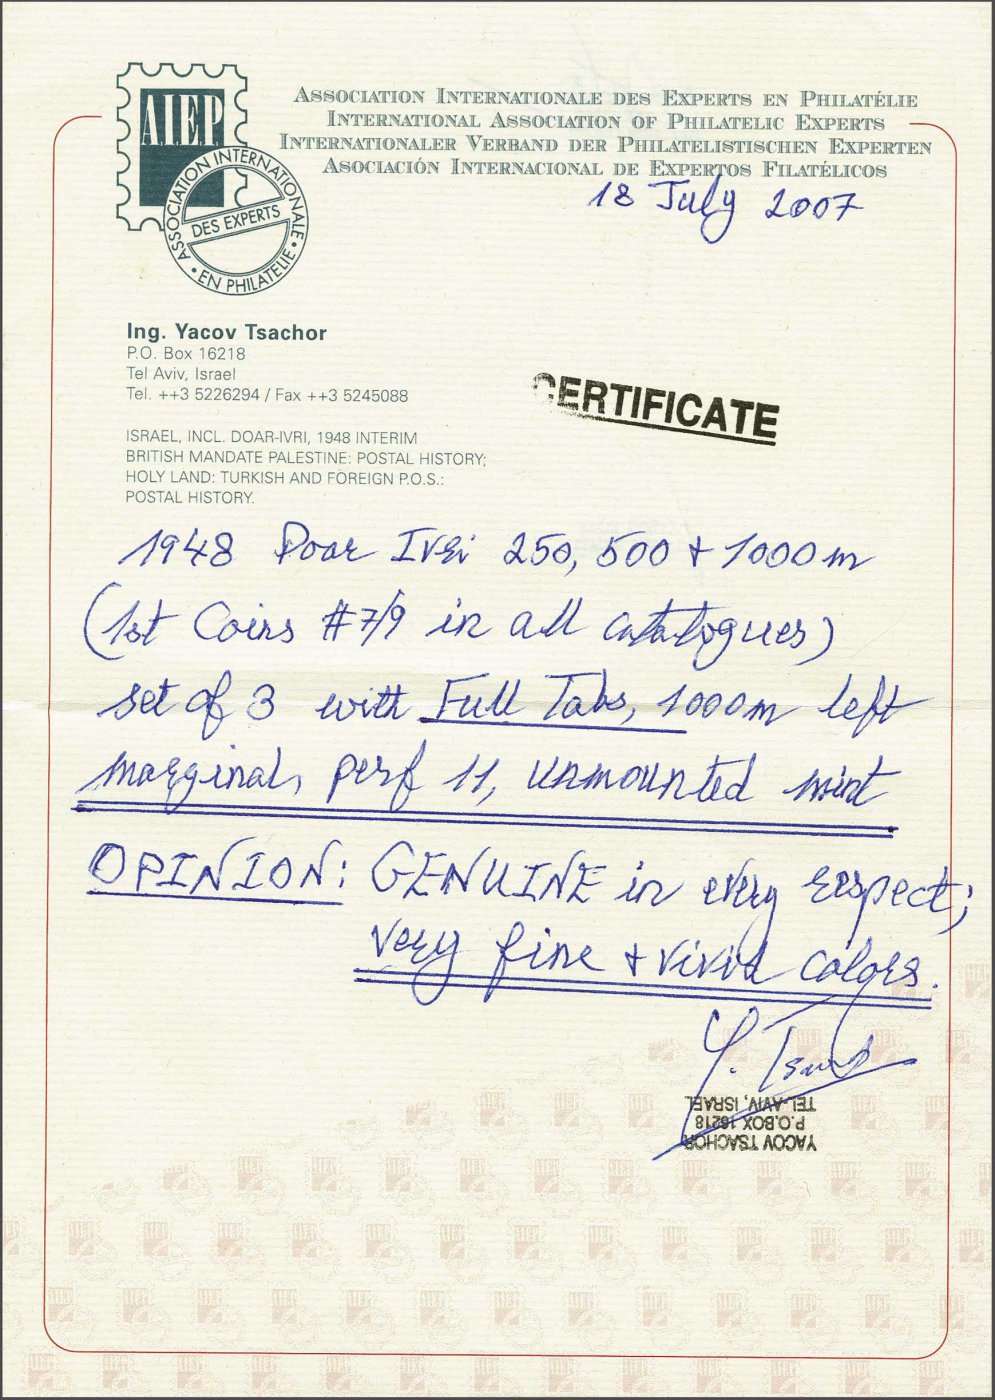 AIEP
ASSOCIATION INTERNATIONALE
DES EXPERTS
EN PHILATELIE
ASSOCIATION INTERNATIONALE DES EXPERTS EN PHILATÉLIE
INTERNATIONAL ASSOCIATION OF PHILATELIC EXPERTS
INTERNATIONALER VERBAND DER PHILATELISTISCHEN EXPERTEN
ASOCIACIÓN INTERNACIONAL DE EXPERTOS FILATÉLICOS
18 July 2007
Ing. Yacov Tsachor
P.O. Box 16218
Tel Aviv, Israel
Tel. ++3 5226294 / Fax ++3 5245088
CERTIFICATE
ISRAEL, INCL. DOAR-IVRI, 1948 INTERIM
BRITISH MANDATE PALESTINE: POSTAL HISTORY;
HOLY LAND: TURKISH AND FOREIGN P.O.S.:
POSTAL HISTORY.
1948 Doar Ivri 250, 500 + 1000m
(1st Coins #7/9 in all catalogues)
set of 3 with Full Tabs, 1000m left
marginal, perf 11, unmounted mint
OPINION: GENUINE in every respect;
very fine + vivid colors.
Y. Tsachor
YACOV TSACHOR
P.O.BOX 16218
TEL-AVIV, ISRAEL